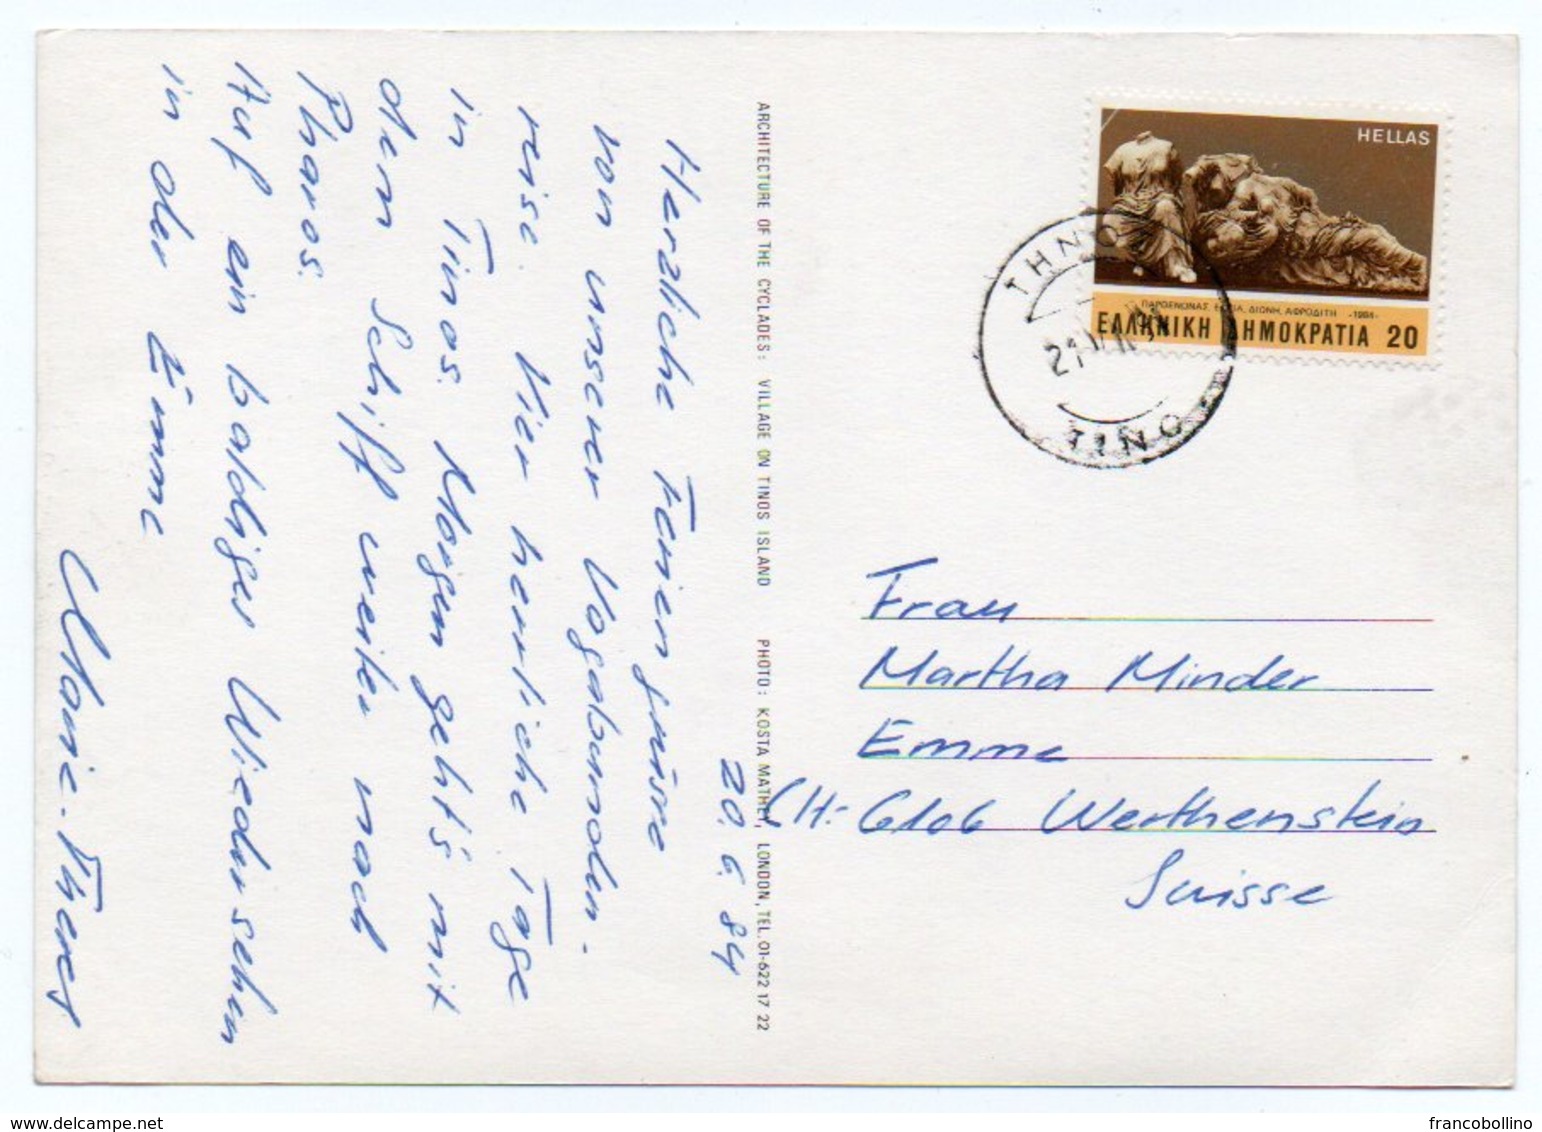 20. 6. 84
Herzliche Feriengrüsse
von unserer Vagabunden-
reise. Vier herrliche Tage
in Tinos. Morgen geht's mit
dem Schiff weiter nach
Pharos.
Auf ein baldiges Wiedersehen
in der Emme
Marie-Theres
ARCHITECTURE OF THE CYCLADES: VILLAGE ON TINOS ISLAND PHOTO: KOSTA MATHEY, LONDON, TEL. 01-622 17 22
HELLAS
ΠΑΡΘΕΝΩΝΑΣ, ΕΣΤΙΑ, ΔΙΩΝΗ, ΑΦΡΟΔΙΤΗ -1984-
ΕΛΛΗΝΙΚΗ ΔΗΜΟΚΡΑΤΙΑ 20
ΤΗΝΟ
21
TINO
Frau
Martha Minder
Emme
CH- 6106 Werthenstein
Suisse
delcampe.net
francobollino